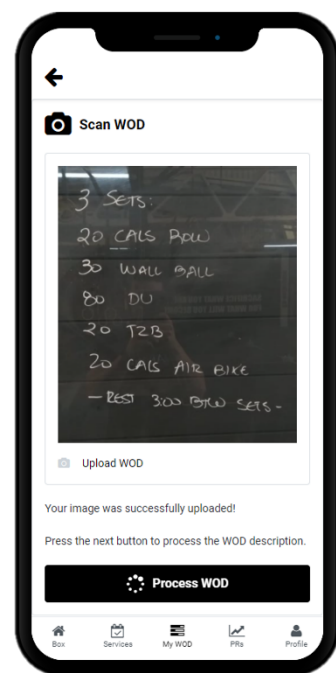 Scan WOD
3 SETS:
20 CALS ROW
30 WALL BALL
80 DU
20 T2B
20 CALS AIR BIKE
- REST 3:00 BTW SETS -
Upload WOD
Your image was successfully uploaded!
Press the next button to process the WOD description.
Process WOD
Box Services My WOD PRs Profile